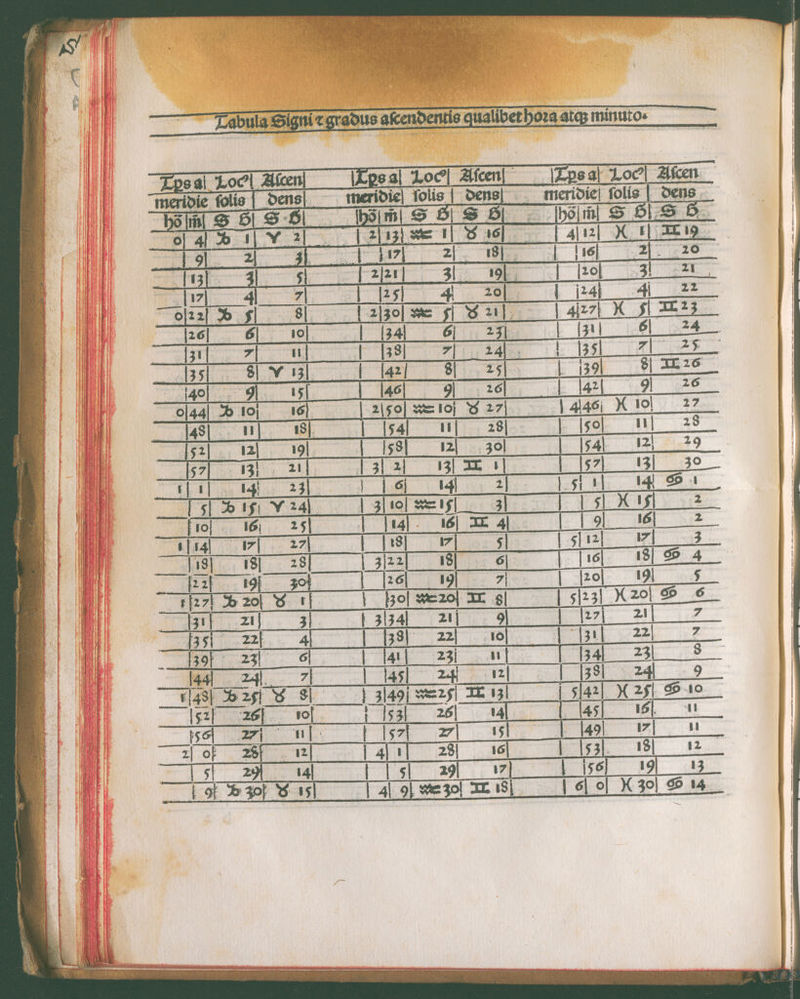 Tabula Signi ⁊ gradus aſcendentis qualibet hora atqꝫ minuto.
Tps a| Locꝰ| Aſcen| |Tps a| Locꝰ| Aſcen| |Tps a| Locꝰ| Aſcen
meridie| ſolis | dens| meridie| ſolis | dens| meridie| ſolis | dens
hō|m̄| S G| S G| |hō|m̄| S G| S G| |hō|m̄| S G| S G
0| 4| ♑ 1| ♈ 2| | 2|13| ♒ 1| ♉ 16| | 4|12| ♓ 1| ♊ 19
| 9| 2| 3| | |17| 2| 18| | |16| 2| 20
|13| 3| 5| | 2|21| 3| 19| | |20| 3| 21
|17| 4| 7| | |25| 4| 20| | |24| 4| 22
0|22| ♑ 5| 8| | 2|30| ♒ 5| ♉ 21| | 4|27| ♓ 5| ♊ 23
|26| 6| 10| | |34| 6| 23| | |31| 6| 24
|31| 7| 11| | |38| 7| 24| | |35| 7| 25
|35| 8| ♈ 13| | |42| 8| 25| | |39| 8| ♊ 26
|40| 9| 15| | |46| 9| 26| | |42| 9| 26
0|44| ♑ 10| 16| | 2|50| ♒ 10| ♉ 27| | 4|46| ♓ 10| 27
|48| 11| 18| | |54| 11| 28| | |50| 11| 28
|52| 12| 19| | |58| 12| 30| | |54| 12| 29
|57| 13| 21| | 3| 2| 13| ♊ 1| | |57| 13| 30
1| 1| 14| 23| | | 6| 14| 2| | 5| 1| 14| ♋ 1
| 5| ♑ 15| ♈ 24| | 3|10| ♒ 15| 3| | | 5| ♓ 15| 2
|10| 16| 25| | |14| 16| ♊ 4| | | 9| 16| 2
1|14| 17| 27| | |18| 17| 5| | 5|12| 17| 3
|18| 18| 28| | 3|22| 18| 6| | |16| 18| ♋ 4
|22| 19| 30| | |26| 19| 7| | |20| 19| 5
1|27| ♑ 20| ♉ 1| | |30| ♒ 20| ♊ 8| | 5|23| ♓ 20| ♋ 6
|31| 21| 3| | 3|34| 21| 9| | |27| 21| 7
|35| 22| 4| | |38| 22| 10| | |31| 22| 7
|39| 23| 6| | |41| 23| 11| | |34| 23| 8
|44| 24| 7| | |45| 24| 12| | |38| 24| 9
1|48| ♑ 25| ♉ 8| | 3|49| ♒ 25| ♊ 13| | 5|42| ♓ 25| ♋ 10
|52| 26| 10| | |53| 26| 14| | |45| 16| 11
|56| 27| 11| | |57| 27| 15| | |49| 17| 11
2| 0| 28| 12| | 4| 1| 28| 16| | |53| 18| 12
| 5| 29| 14| | | 5| 29| 17| | |56| 19| 13
| 9| ♑ 30| ♉ 15| | 4| 9| ♒ 30| ♊ 18| | 6| 0| ♓ 30| ♋ 14